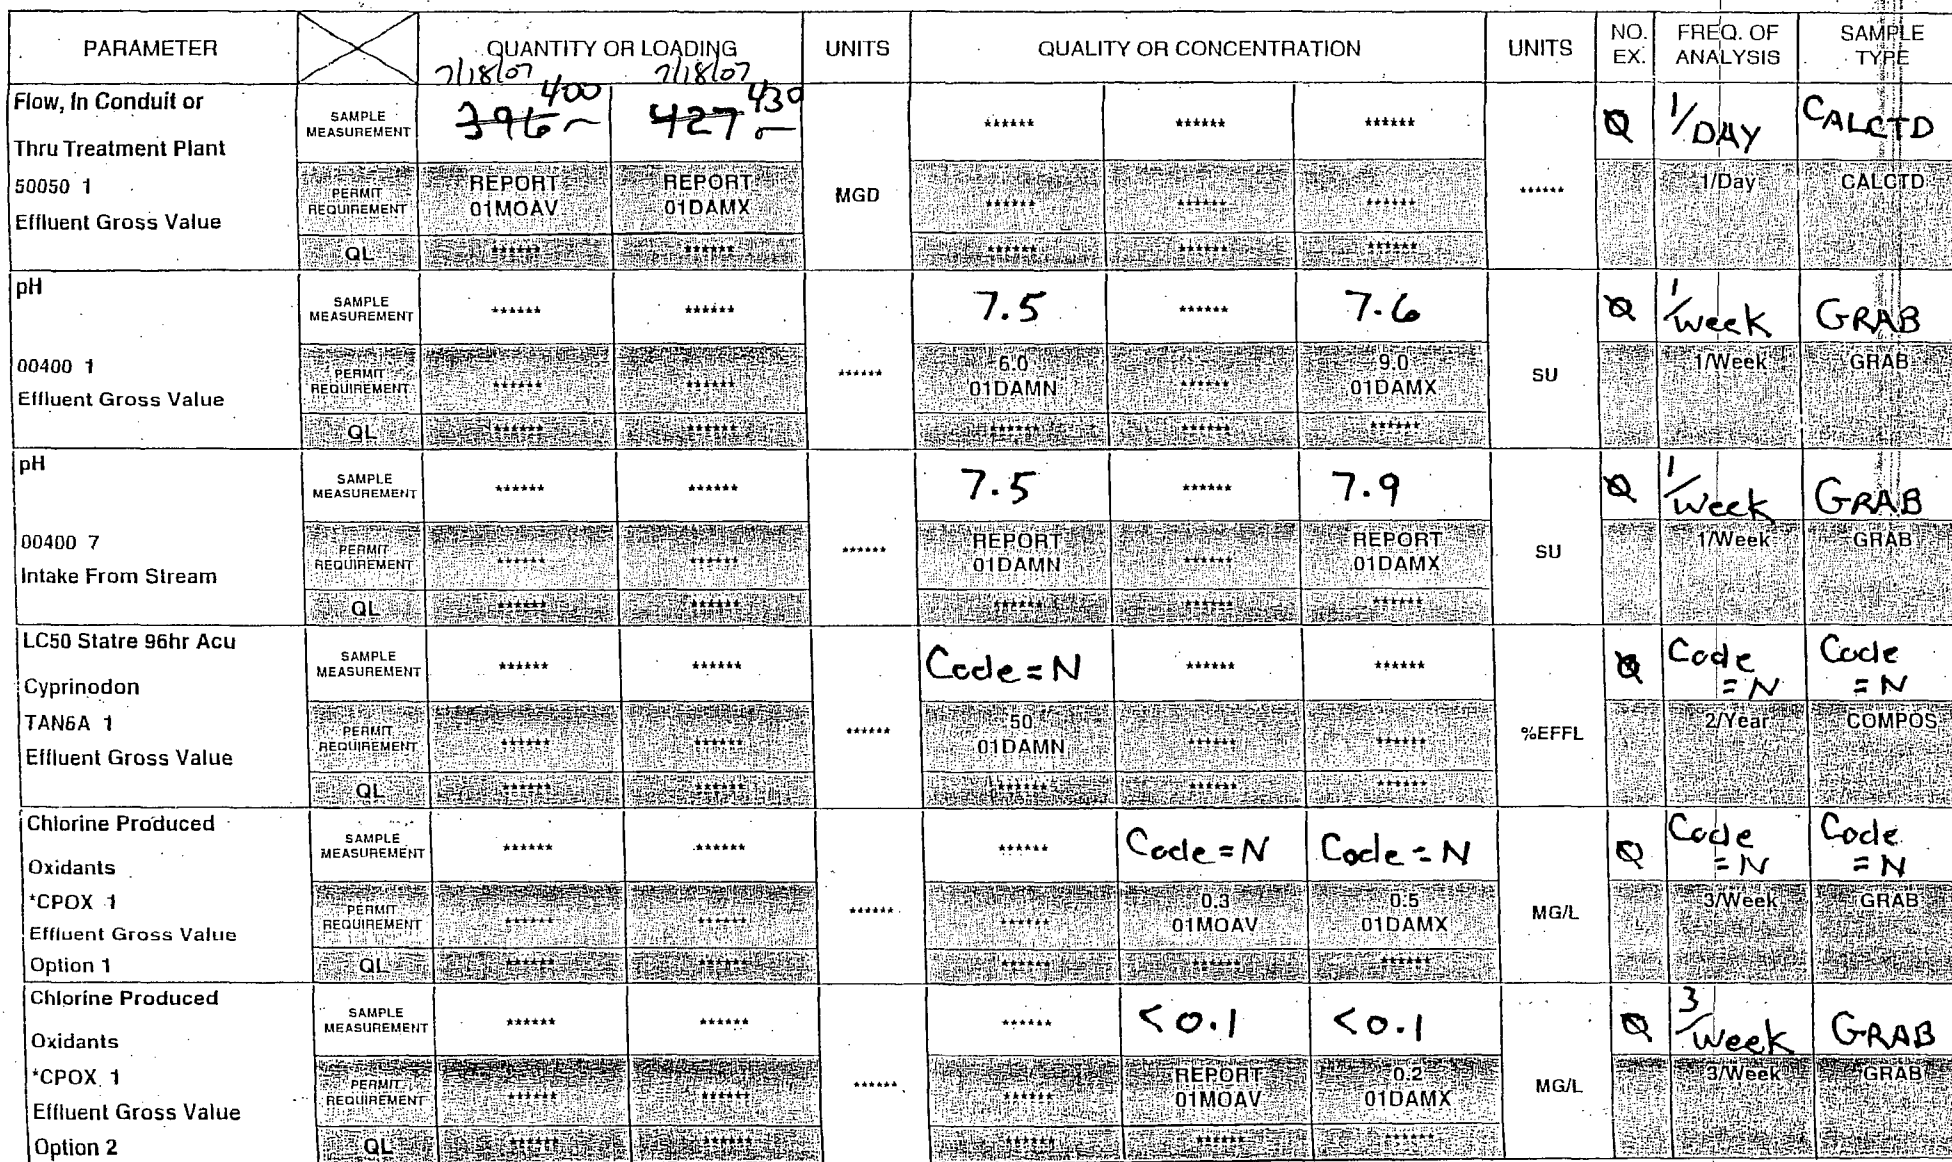 PARAMETER QUANTITY OR LOADING UNITS QUALITY OR CONCENTRATION UNITS NO. EX. FREQ. OF ANALYSIS SAMPLE TYPE
7/18/07 7/18/07
Flow, In Conduit or
Thru Treatment Plant
50050 1
Effluent Gross Value
SAMPLE MEASUREMENT 396 400 427 430 ****** ****** ****** 0 1/DAY CALCTD
PERMIT REQUIREMENT REPORT 01MOAV REPORT 01DAMX MGD ****** ****** ****** ****** 1/Day CALCTD
QL ****** ****** ****** ****** ******
pH
00400 1
Effluent Gross Value
SAMPLE MEASUREMENT ****** ****** 7.5 ****** 7.6 0 1/week GRAB
PERMIT REQUIREMENT ****** ****** ****** 6.0 01DAMN ****** 9.0 01DAMX SU 1/Week GRAB
QL ****** ****** ****** ****** ******
pH
00400 7
Intake From Stream
SAMPLE MEASUREMENT ****** ****** 7.5 ****** 7.9 0 1/week GRAB
PERMIT REQUIREMENT ****** ****** ****** REPORT 01DAMN ****** REPORT 01DAMX SU 1/Week GRAB
QL ****** ****** ****** ****** ******
LC50 Statre 96hr Acu
Cyprinodon
TAN6A 1
Effluent Gross Value
SAMPLE MEASUREMENT ****** ****** Code=N ****** ****** 0 Code =N Code =N
PERMIT REQUIREMENT ****** ****** ****** 50 01DAMN ****** ****** %EFFL 2/Year COMPOS
QL ****** ****** ****** ****** ******
Chlorine Produced
Oxidants
*CPOX 1
Effluent Gross Value
Option 1
SAMPLE MEASUREMENT ****** ****** ****** Code=N Code=N 0 Code =N Code =N
PERMIT REQUIREMENT ****** ****** ****** ****** 0.3 01MOAV 0.5 01DAMX MG/L 3/Week GRAB
QL ****** ****** ****** ****** ******
Chlorine Produced
Oxidants
*CPOX 1
Effluent Gross Value
Option 2
SAMPLE MEASUREMENT ****** ****** ****** <0.1 <0.1 0 3/week GRAB
PERMIT REQUIREMENT ****** ****** ****** ****** REPORT 01MOAV 0.2 01DAMX MG/L 3/Week GRAB
QL ****** ****** ****** ****** ******